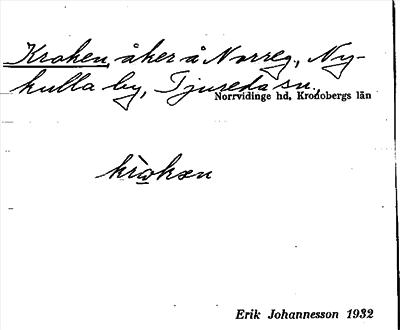 Kroken, åker å Norreg., Ny-
kulla by, Tjureda sn.,
Norrvidinge hd, Kronobergs län
kròkən
Erik Johannesson 1932